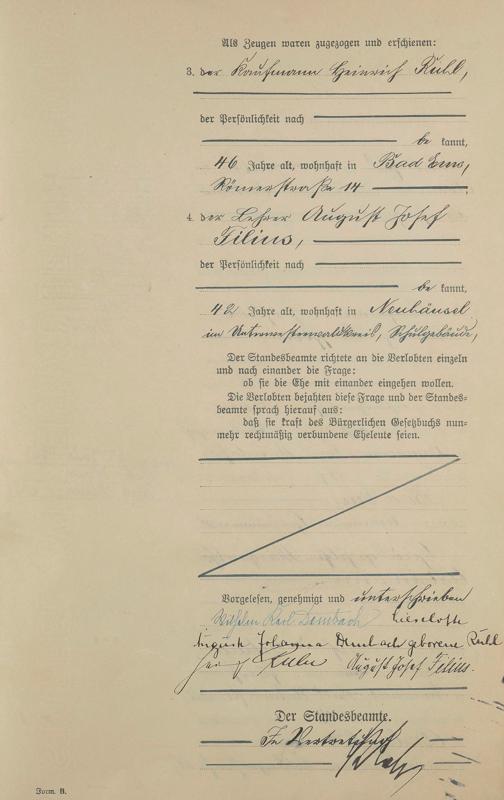 Als Zeugen waren zugezogen und erschienen:
3. der Kaufmann Heinrich Kuhl,
der Persönlichkeit nach
be kannt,
46 Jahre alt, wohnhaft in Bad Ems,
Römerstraße 14
4. der Lehrer August Josef
Filius,
der Persönlichkeit nach
be kannt,
42 Jahre alt, wohnhaft in Neuhäusel
im Unterwesterwaldkreis, Schulgebäude,
Der Standesbeamte richtete an die Verlobten einzeln
und nach einander die Frage:
ob sie die Ehe mit einander eingehen wollen.
Die Verlobten bejahten diese Frage und der Standes-
beamte sprach hierauf aus:
daß sie kraft des Bürgerlichen Gesetzbuchs nun-
mehr rechtmäßig verbundene Eheleute seien.
Vorgelesen, genehmigt und unterschrieben
Wilhelm Karl Dembach Lieselotte
Auguste Johanna Dembach geborene Kuhl
Kuhl August Josef Filius.
Der Standesbeamte.
In Vertretung
Form. B.